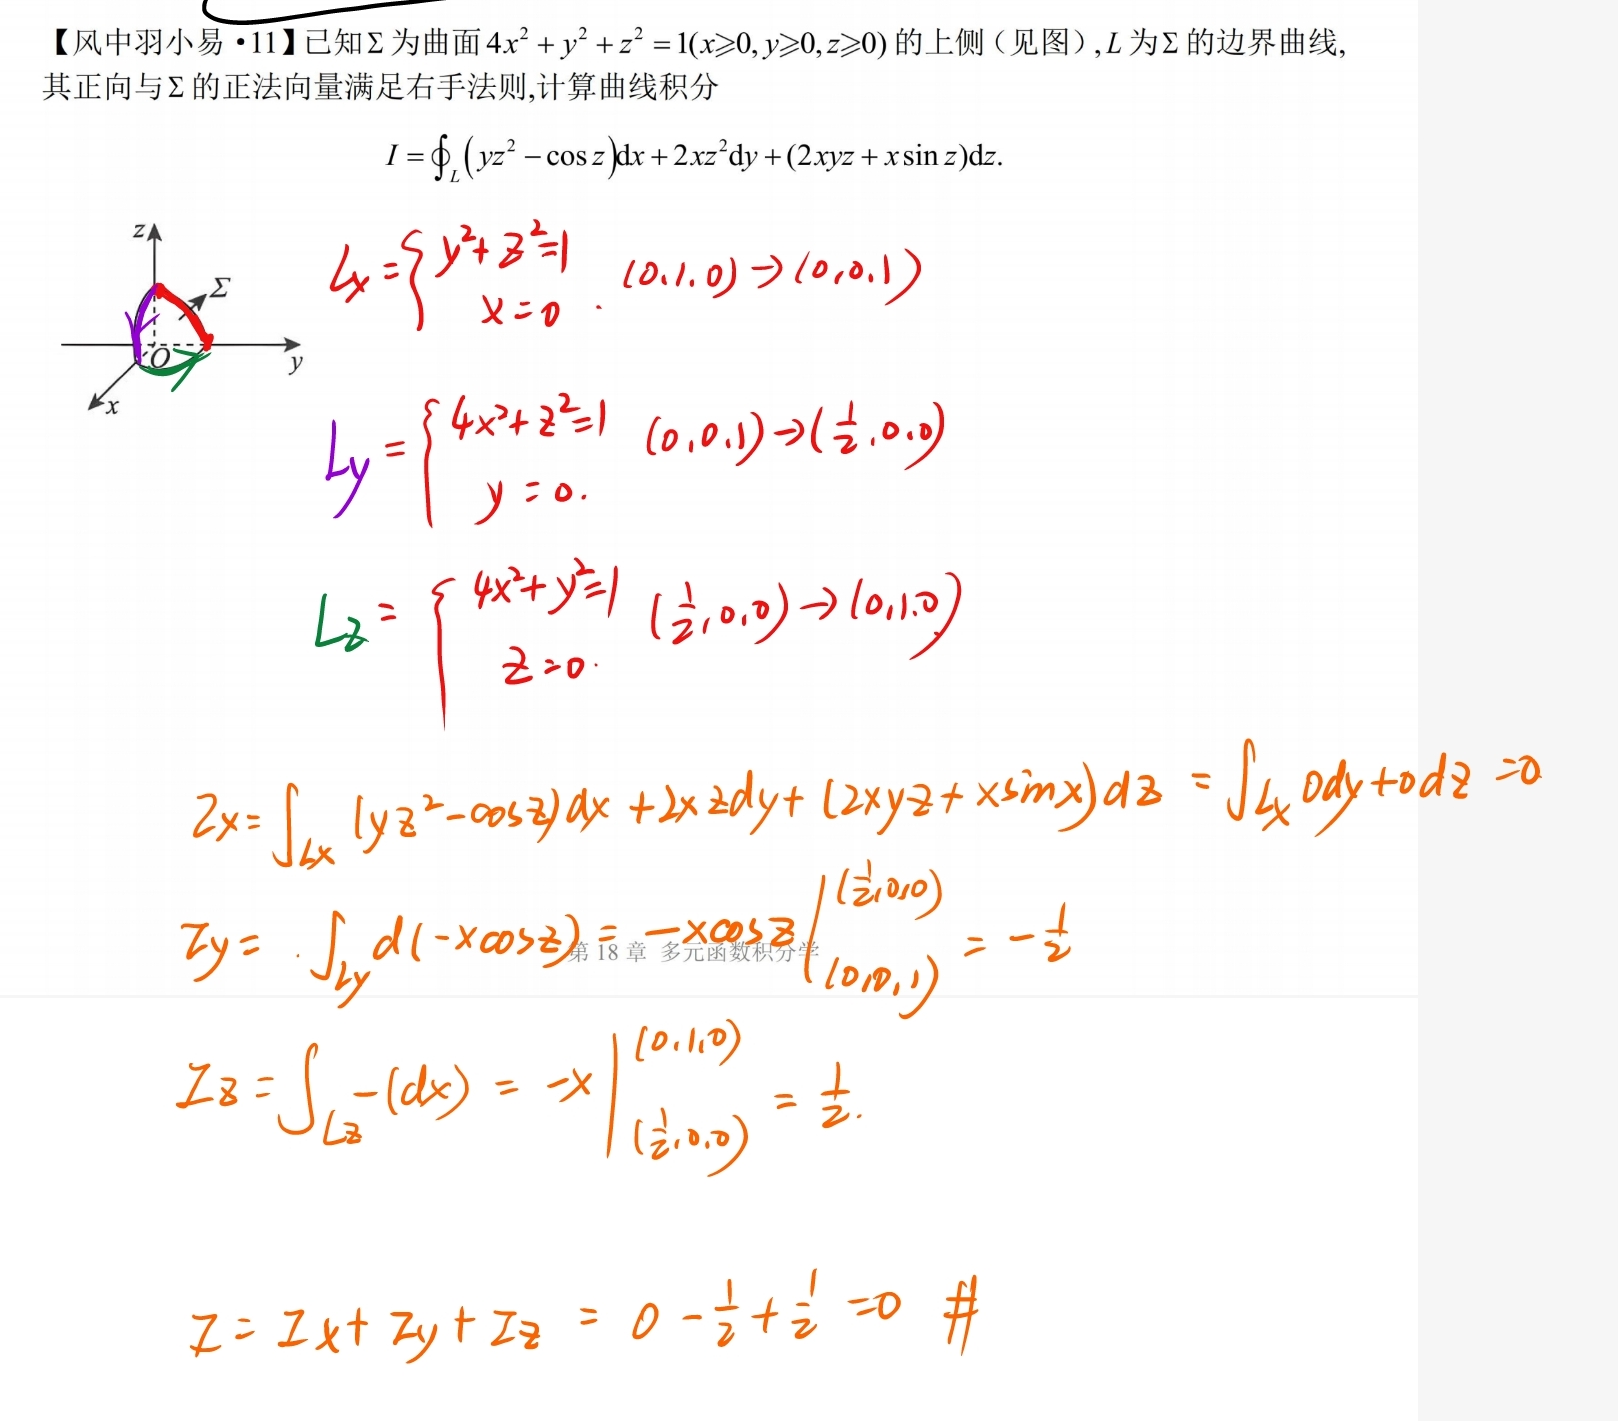 【风中羽小易·11】已知Σ为曲面4x²+y²+z²=1(x⩾0,y⩾0,z⩾0)的上侧(见图),L为Σ的边界曲线,
其正向与Σ的正法向量满足右手法则,计算曲线积分
I=∮_L(yz²−cos z)dx+2xz²dy+(2xyz+x sin z)dz.
z
Σ
O
y
x
Lx={y²+z²=1 (0,1,0)→(0,0,1)
x=0.
Ly={4x²+z²=1 (0,0,1)→(1/2,0,0)
y=0.
Lz={4x²+y²=1 (1/2,0,0)→(0,1,0)
z=0.
Ix=∫_Lx(yz²-cosz)dx+2xzdy+(2xyz+xsinx)dz=∫_Lx 0dy+0dz=0
Iy=∫_Ly d(-xcosz)=-xcosz|_(0,0,1)^(1/2,0,0)=-1/2
第18章 多元函数积分学
Iz=∫_Lz-(dx)=-x|_(1/2,0,0)^(0,1,0)=1/2.
I=Ix+Iy+Iz=0-1/2+1/2=0 #